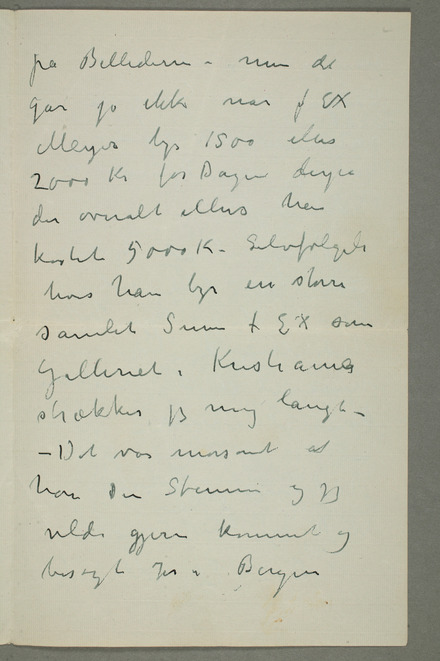 på Billederne – men det
går jo ikke når f EX
Meyer byr 1500 eller
2000 Kr for Dagen
der overalt ellers har
kostet 5000 K – Selvfølgelig
hvis han byr en større
samlet Sum f EX som
Galleriet i Kristiania
strækker jeg mig langt –
– Det var morsomt at
høre Din Stemme og jeg
vilde gjerne kommet og
besøgt Jer i Bergen